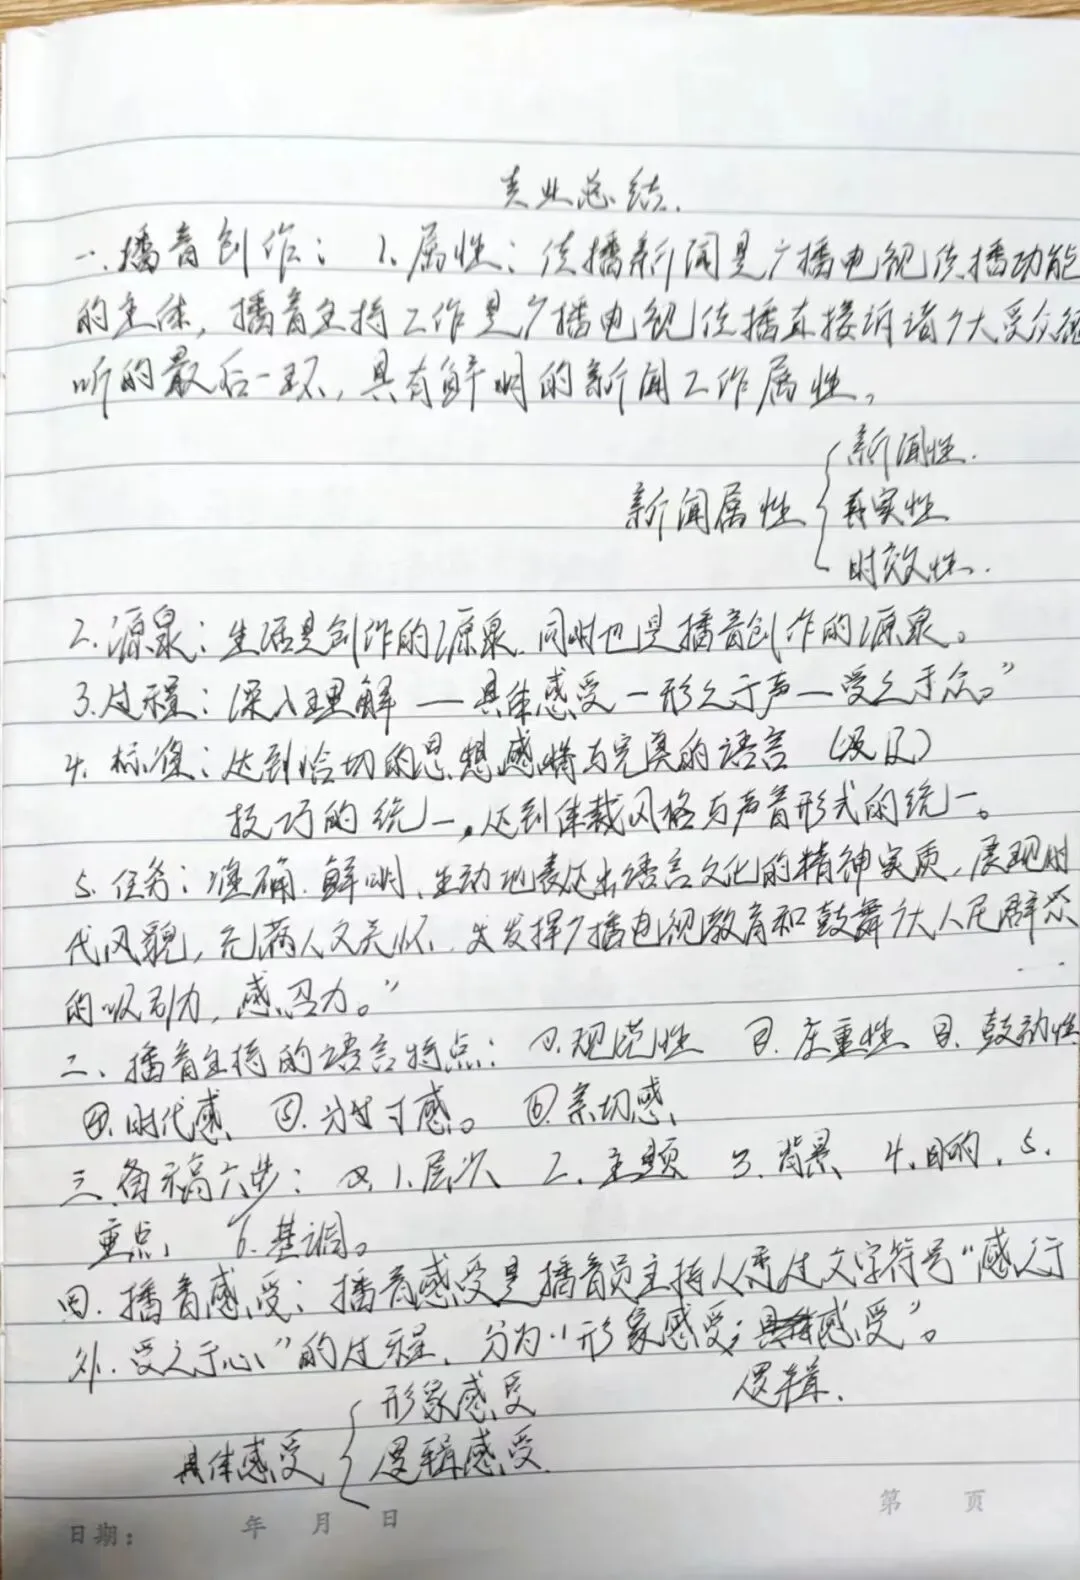 专业总结.
一.播音创作: 1.属性:传播新闻是广播电视传播功能
的主体,播音主持工作是广播电视传播直接诉诸广大受众视
听的最后一环,具有鲜明的新闻工作属性。
新闻属性 { 新闻性.
真实性
时效性.
2.源泉:生活是创作的源泉.同时也是播音创作的源泉。
3.过程:深入理解 — 具体感受 — 形之于声 — 受之于众。”
4.标准:达到恰切的思想感情与完美的语言
技巧的统一。达到体裁风格与声音形式的统一。
5.任务:准确.鲜明、生动地表达出语言文化的精神实质,展现时
代风貌,充满人文关怀.发挥广播电视教育和鼓舞广大人民群众
的吸引力,感召力。”
二、播音主持的语言特点: ①.规范性 ②.庄重性 ③.鼓动性
④.时代感、 ⑤.分寸感。 ⑥.亲切感、
三.备稿六步: 1.层次 2.主题 3.背景 4.目的.5.
重点、 6.基调。
四.播音感受:播音感受是播音员主持人透过文字符号“感之于
外.受之于心”的过程.分为“形象感受;感受”。
逻辑.
具体感受 { 形象感受
逻辑感受
日期: 年 月 日 第 页